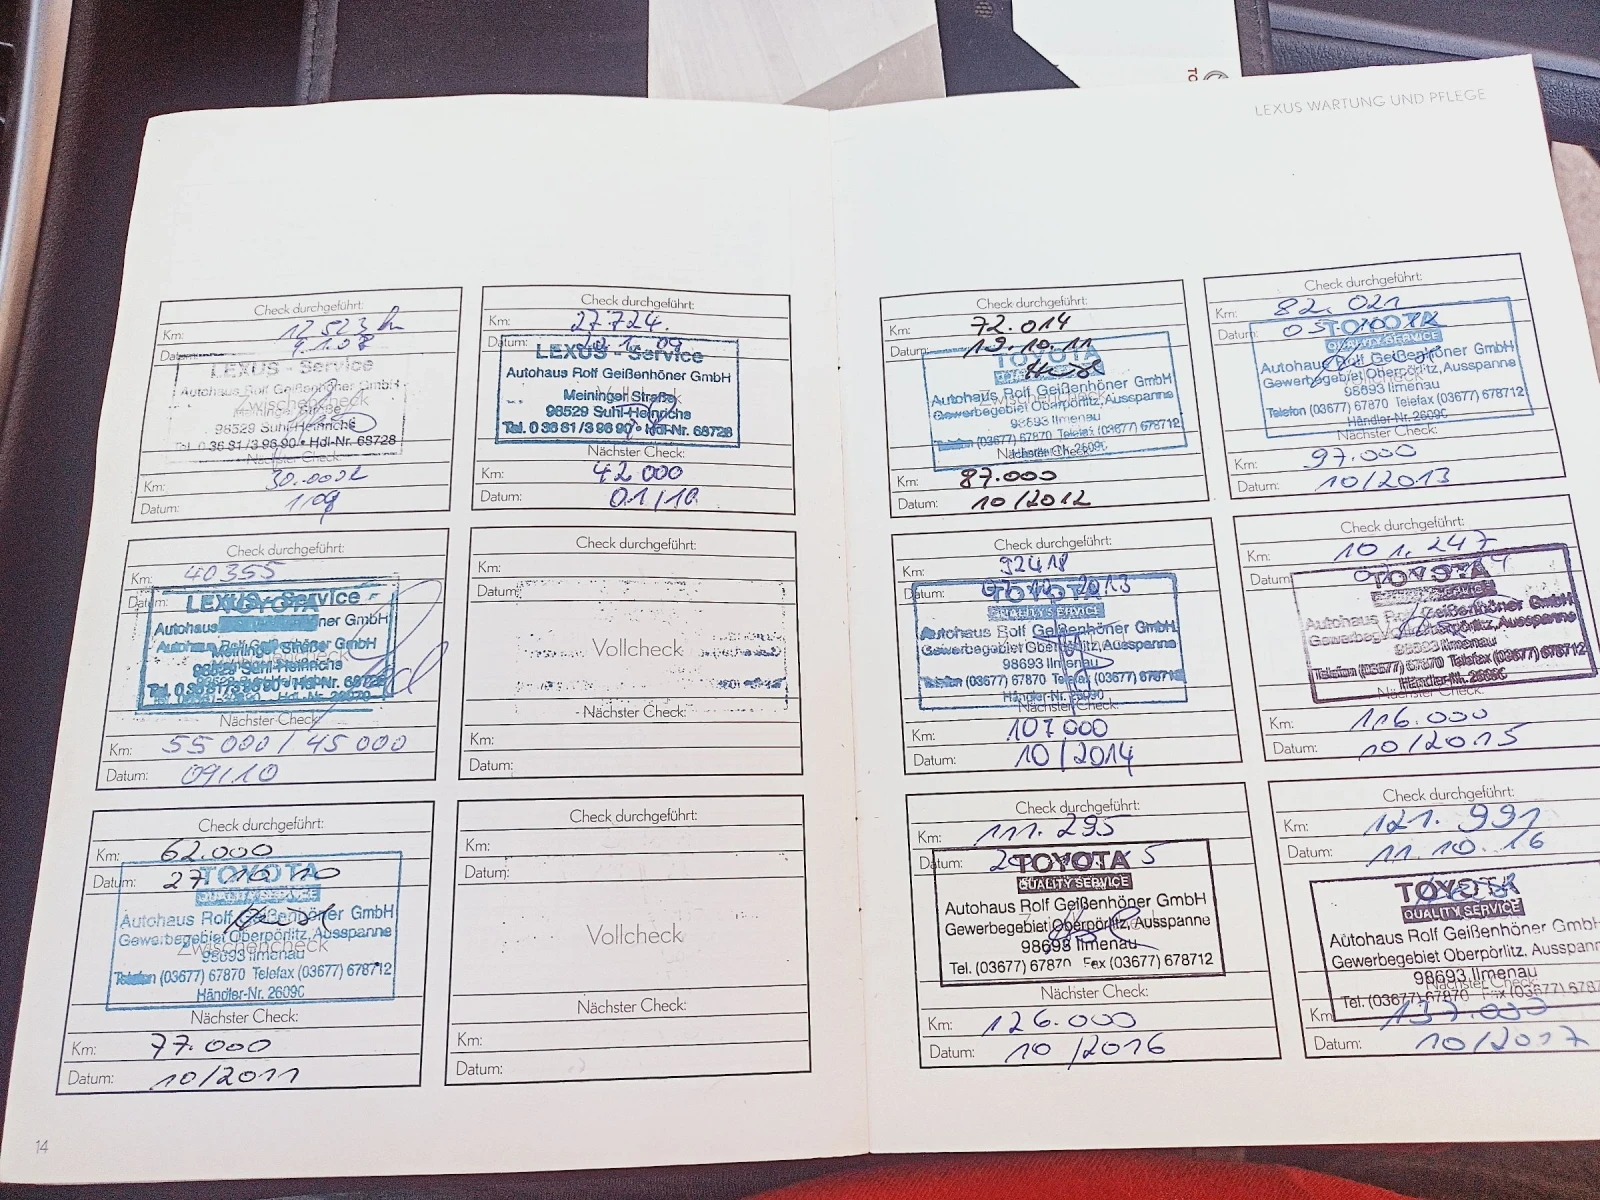 LEXUS WARTUNG UND PFLEGE
Check durchgeführt:
Km: 12 523 km
Datum: 9.1.08
LEXUS - Service
Autohaus Rolf Geißenhöner GmbH
Zwischencheck
Meininger Straße
98529 Suhl-Heinrichs
Tel. 0 36 81 / 3 96 90 • Hdl-Nr. 68728
Nächster Check:
Km: 30.000
Datum: 1/09
Check durchgeführt:
Km: 27.724.
Datum:
LEXUS - Service
Autohaus Rolf Geißenhöner GmbH
Vollcheck
Meininger Straße
98529 Suhl-Heinrichs
Tel. 0 36 81 / 3 96 90 • Hdl-Nr. 68728
Nächster Check:
Km: 42 000
Datum: 01/10
Check durchgeführt:
Km: 40355
Datum:
LEXUS - Service
TOYOTA
Autohaus
Meininger Straße
98529 Suhl-Heinrichs
Nächster Check:
Km: 55 000 / 45 000
Datum: 09/10
Check durchgeführt:
Km:
Datum:
Vollcheck
Nächster Check:
Km:
Datum:
Check durchgeführt:
Km: 62.000
Datum: 27 10 10
TOYOTA
QUALITY SERVICE
Autohaus Rolf Geißenhöner GmbH
Gewerbegebiet Oberpörlitz, Ausspanne
Zwischencheck
98693 Ilmenau
Telefon (03677) 67870 Telefax (03677) 678712
Händler-Nr. 26090
Nächster Check:
Km: 77.000
Datum: 10/2011
Check durchgeführt:
Km:
Datum:
Vollcheck
Nächster Check:
Km:
Datum:
14
Check durchgeführt:
Km: 72.014
Datum: 19.10.11
TOYOTA
Autohaus Rolf Geißenhöner GmbH
Zwischencheck
Gewerbegebiet Oberpörlitz, Ausspanne
98693 Ilmenau
Telefon (03677) 67870 Telefax (03677) 678712
Händler-Nr. 26090
Nächster Check:
Km: 87.000
Datum: 10/2012
Check durchgeführt:
Km: 82.021
Datum:
TOYOTA
QUALITY SERVICE
Autohaus Rolf Geißenhöner GmbH
Gewerbegebiet Oberpörlitz, Ausspanne
98693 Ilmenau
Telefon (03677) 67870 Telefax (03677) 678712
Händler-Nr. 26090
Nächster Check:
Km: 97.000
Datum: 10/2013
Check durchgeführt:
Km: 92418
Datum:
TOYOTA
QUALITY SERVICE
Autohaus Rolf Geißenhöner GmbH
Gewerbegebiet Oberpörlitz, Ausspanne
98693 Ilmenau
Telefon (03677) 67870 Telefax (03677) 678712
Händler-Nr. 26090
Nächster Check:
Km: 107 000
Datum: 10/2014
Check durchgeführt:
Km: 101.247
Datum:
TOYOTA
QUALITY SERVICE
Autohaus Rolf Geißenhöner GmbH
Gewerbegebiet Oberpörlitz, Ausspanne
98693 Ilmenau
Telefon (03677) 67870 Telefax (03677) 678712
Händler-Nr. 26090
Nächster Check:
Km: 116.000
Datum: 10/2015
Check durchgeführt:
Km: 111.295
Datum:
TOYOTA
QUALITY SERVICE
Autohaus Rolf Geißenhöner GmbH
Gewerbegebiet Oberpörlitz, Ausspanne
98693 Ilmenau
Tel. (03677) 67870 Fax (03677) 678712
Nächster Check:
Km: 126.000
Datum: 10/2016
Check durchgeführt:
Km: 121.991
Datum: 11.10.16
TOYOTA
QUALITY SERVICE
Autohaus Rolf Geißenhöner GmbH
Gewerbegebiet Oberpörlitz, Ausspann
98693 Ilmenau
Nächster Check:
Tel. (03677) 67870 Fax (03677) 6787
Km: 137.000
Datum: 10/2017